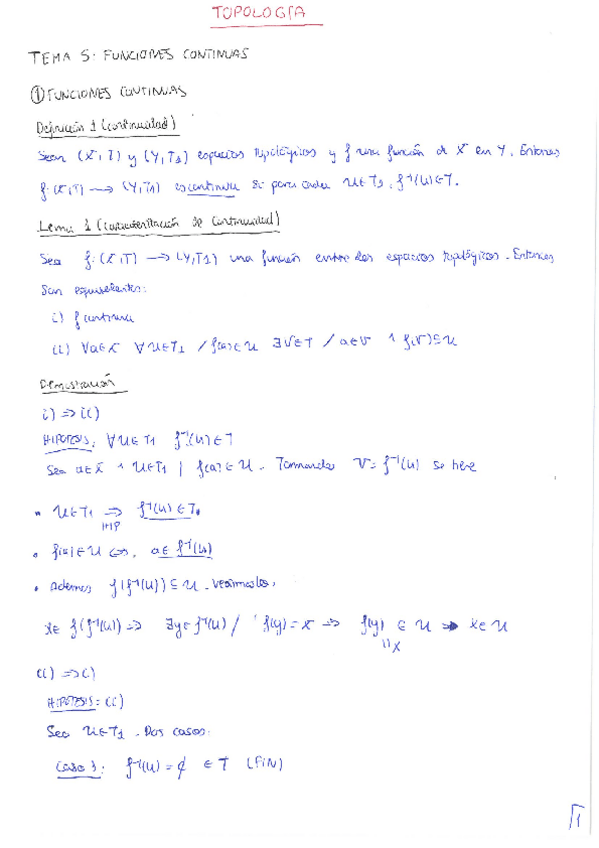 TOPOLOGÍA
TEMA 5. FUNCIONES CONTINUAS
① FUNCIONES CONTINUAS
Definición 1 (continuidad)
Sean (X,T) y (Y,T1) espacios topológicos y f una función de X en Y. Entonces
f:(X,T) → (Y,T1) es continua si para cada U∈T1, f⁻¹(U)∈T.
Lema 1 (caracterización de continuidad)
Sea f:(X,T) → (Y,T1) una función entre dos espacios topológicos. Entonces
son equivalentes:
i) f continua
ii) ∀a∈X ∀U∈T1 / f(a)∈U ∃V∈T / a∈V ∧ f(V)⊆U
Demostración
i) ⇒ ii)
HIPÓTESIS: ∀U∈T1 f⁻¹(U)∈T
Sea a∈X ∧ U∈T1 | f(a)∈U. Tomando V=f⁻¹(U) se tiene
• U∈T1 ⇒ f⁻¹(U)∈T.
HIP
• f(a)∈U ⇔ a∈f⁻¹(U)
• Además f(f⁻¹(U))⊆U. Veámoslo.
x∈f(f⁻¹(U)) ⇒ ∃y∈f⁻¹(U) / f(y)=x ⇒ f(y)∈U ⇒ x∈U
x
ii) ⇒ i)
HIPÓTESIS: ii)
Sea U∈T1. Dos casos:
Caso 1: f⁻¹(U)=∅ ∈T (FIN)
1